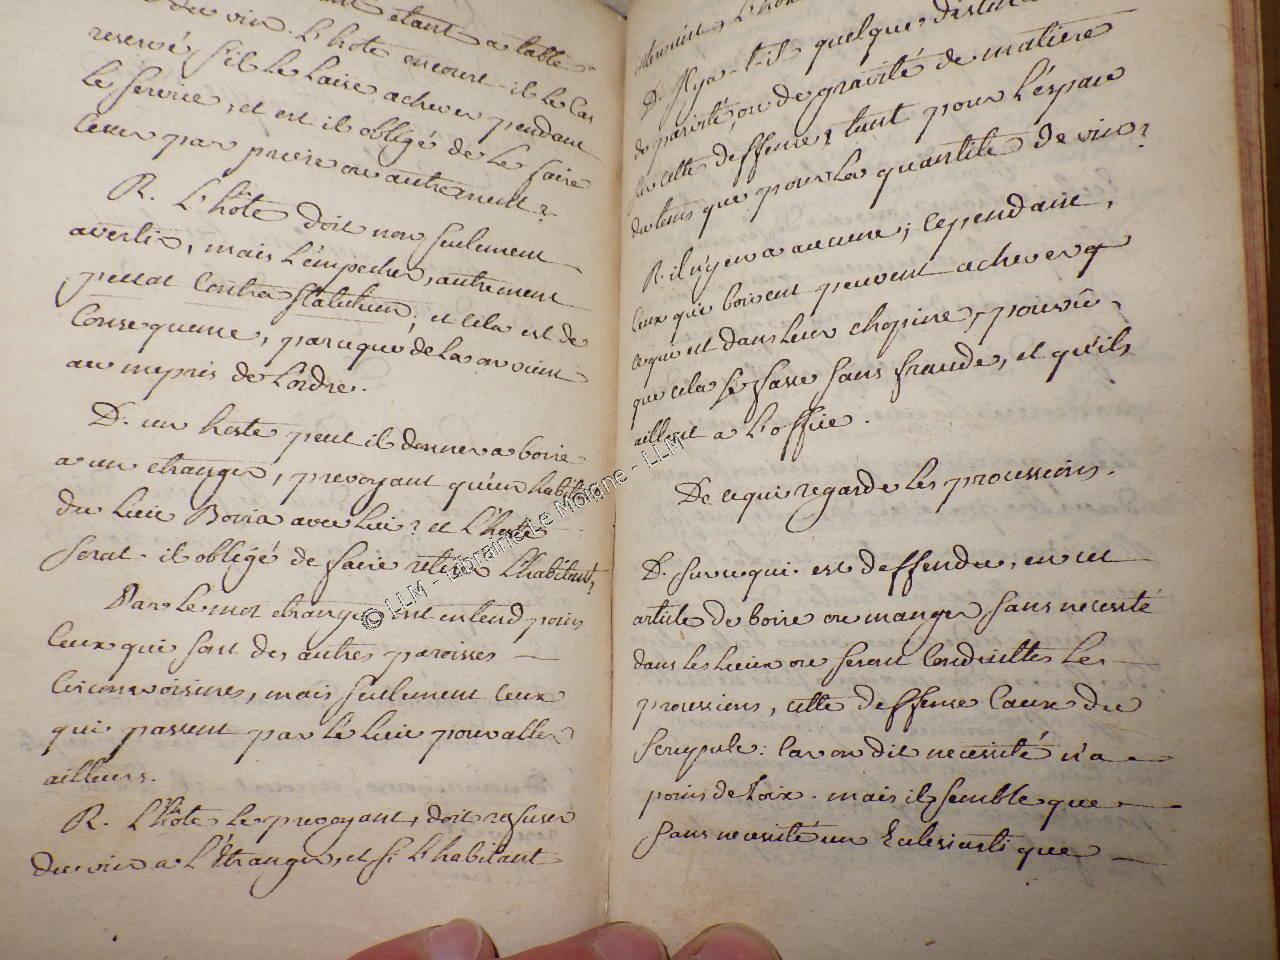 étant a table
du vin. L'hôte encourt-il le cas
reservé s'il le laisse achever pendant
le service, et est il obligé de le faire
cesser par priere ou autrement?
R. L'hôte doit non seulement
avertir, mais l'empecher, autrement
peccat contra statutum, et cela est de
consequence, parceque de la on vient
au mepris de l'ordre.
D. un hoste peut il donner a boire
a un etranger, prevoyant qu'un habit
du lieu Boira avec lui? et l'hoste
serat-il obligé de faire retirer l'habitant?
Par le mot etranger on n'entend point
ceux qui sont des autres paroisses
circonvoisines, mais seulement ceux
qui passent par le lieu pour aller
ailleurs.
R. L'hôte le prevoyant, doit refuser
du vin a l'Etranger, et si l'habitant
D. Il y a-t-il quelque distinc
de parvité, ou de gravité de matiere
sur cette deffense; tant pour l'espace
du tems que pour la quantité de vin?
R. il n'y en a aucune; cependant,
ceux qui boivent peuvent achever
ce qui est dans leur chopine, pourvû
que cela se fasse sans fraude, et qu'ils
aillent a l'office.
De ce qui regarde les processions.
D. sur ce qui est deffendu, en cet
article de boire ou manger sans necesité
dans les lieux ou seront conduittes les
processions, cette deffense cause du
scrupule: car on dit necesité n'a
point de Loix. mais il semble que
sans necesité un Eclesiastique
© LLM - Librairie Le Moigne - LLM